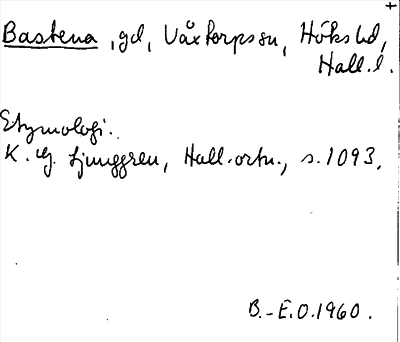 Bastena, gd, Växtorps sn, Höks hd,
Hall. l.
Etymologi..
K. G. Ljunggren, Hall. ortn., s. 1093.
B.-E.O. 1960.